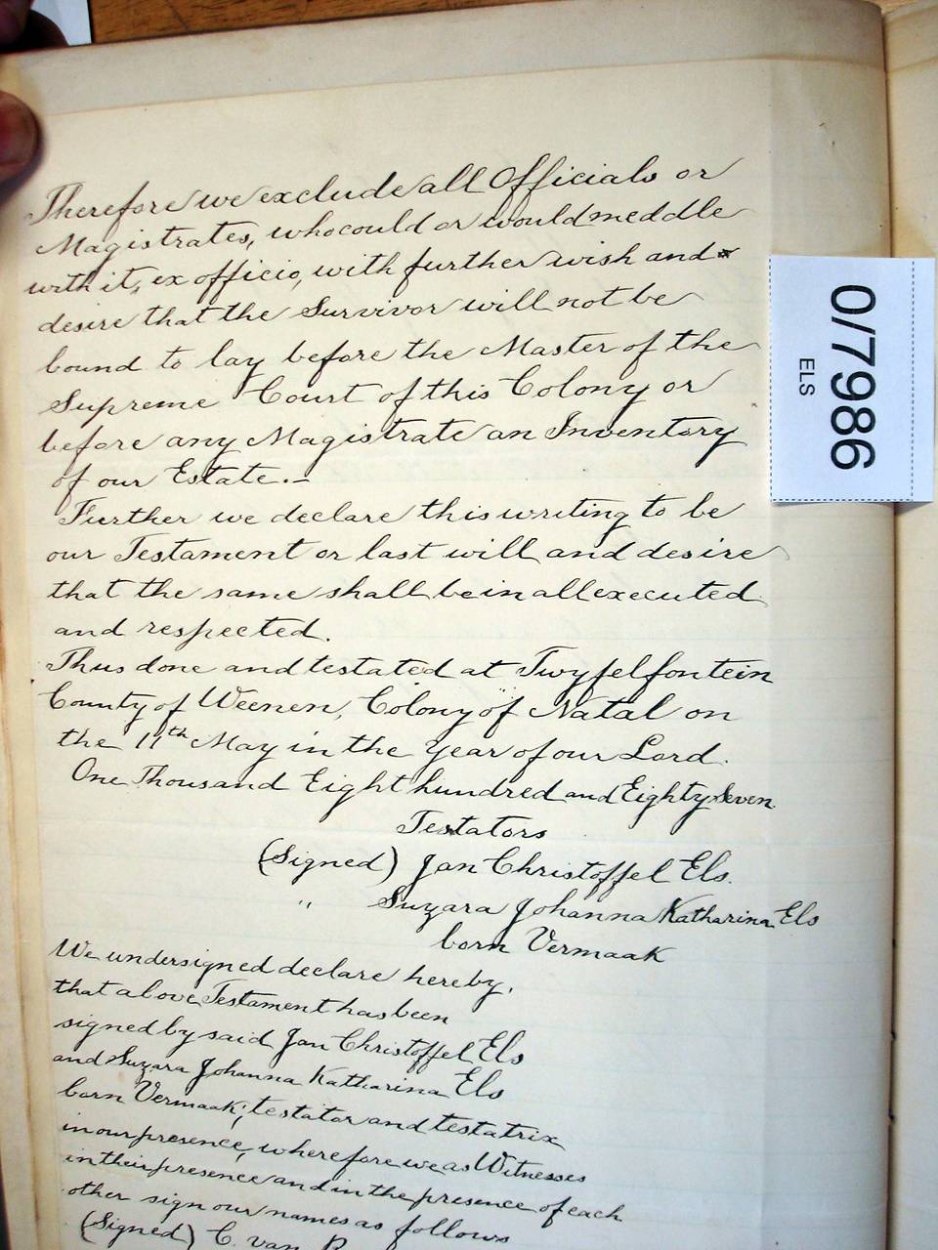 Therefore we exclude all Officials or
Magistrates, who could or would meddle
with it, ex officio, with further wish and
desire that the Survivor will not be
bound to lay before the Master of the
Supreme Court of this Colony or
before any Magistrate an Inventory
of our Estate.—
Further we declare this writing to be
our Testament or last will and desire
that the same shall be in all executed
and respected.
Thus done and testated at Twyfelfontein
County of Weenen, Colony of Natal on
the 11th May in the Year of our Lord.
One Thousand Eight hundred and Eighty Seven
Testators
(Signed) Jan Christoffel Els.
" Suzara Johanna Katharina Els
born Vermaak
We undersigned declare hereby,
that above Testament has been
signed by said Jan Christoffel Els
and Suzara Johanna Katharina Els
born Vermaak; testator and testatrix
in our presence, wherefore we as Witnesses
in their presence and in the presence of each
other sign our names as follows
(Signed) C. van
0/7986
ELS